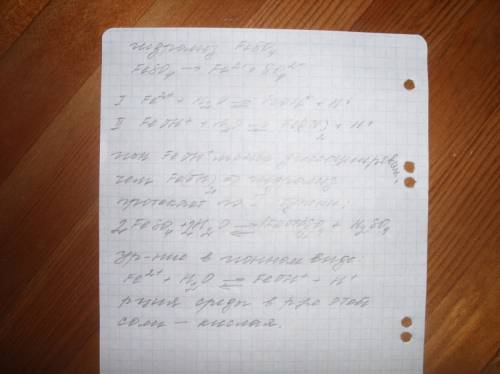 гидролиз FeSO₄
FeSO₄ → Fe²⁺ + SO₄²⁻
I Fe²⁺ + H₂O ⇌ FeOH⁺ + H⁺
II FeOH⁺ + H₂O ⇌ Fe(OH)₂ + H⁺
ион FeOH⁺
чем Fe(OH)₂ ⇒ гидролиз
протекает по I
2FeSO₄ + 2H₂O ⇌ (FeOH)₂SO₄ + H₂SO₄
ур-ние в ионном виде:
Fe²⁺ + H₂O ⇌ FeOH⁺ + H⁺
р-ция среды в р-ре этой
соли – кислая.